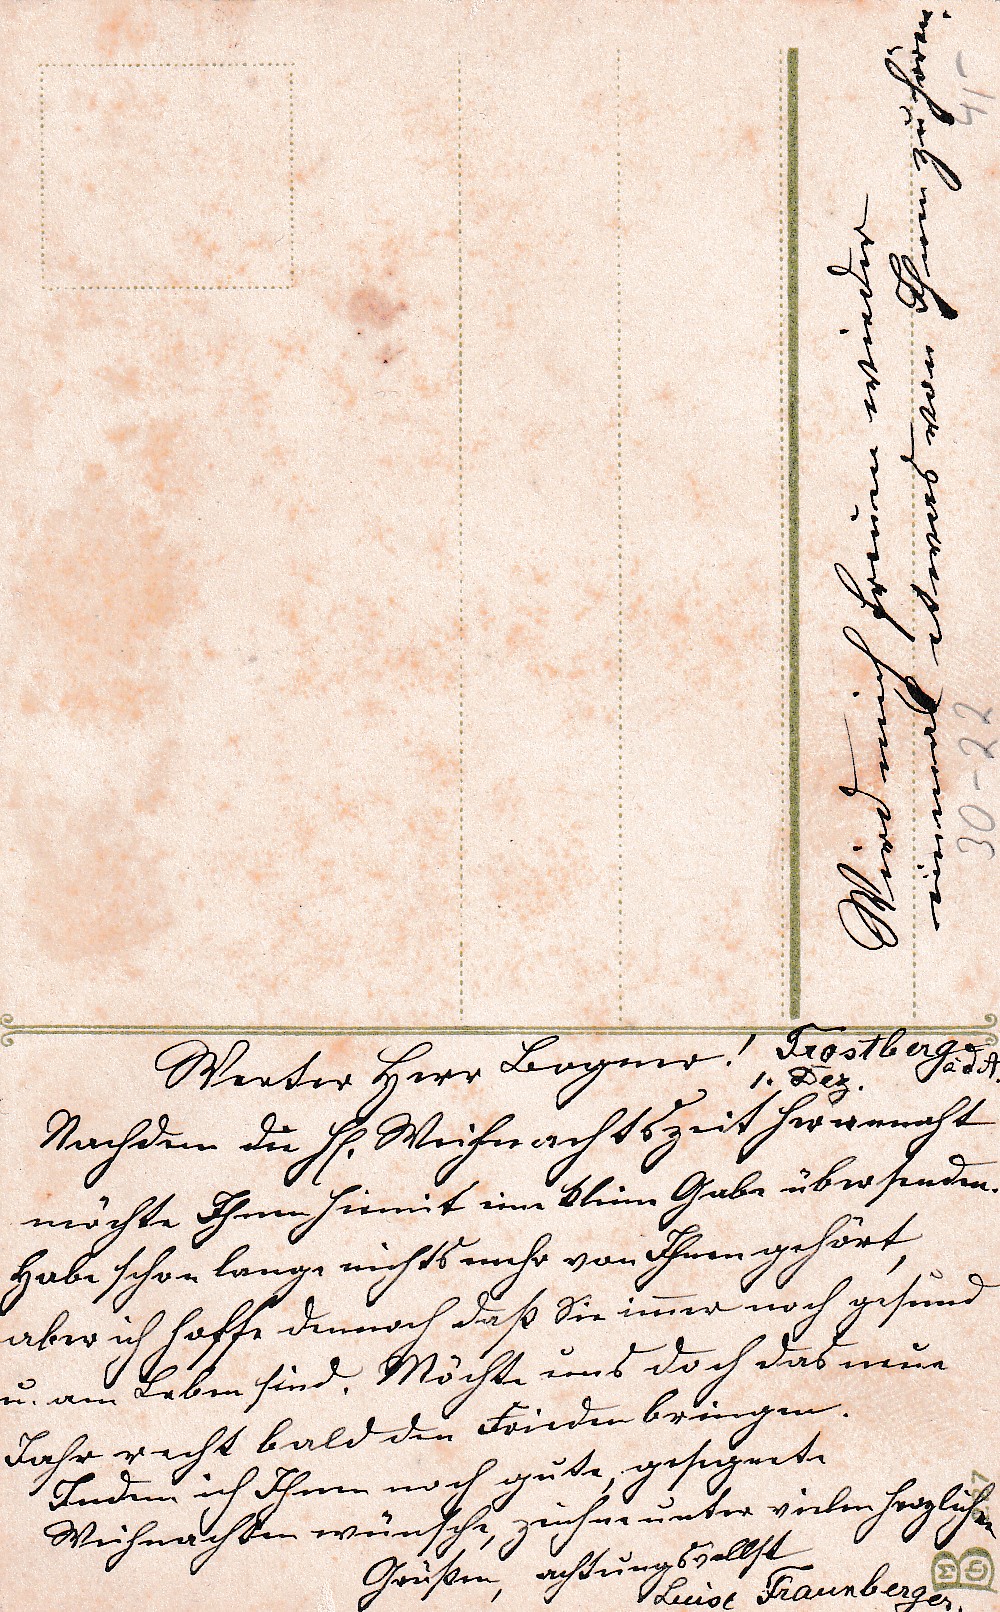 Werter Herr Bogner! Trostberg a d A.
1. Dez.
Nachdem die hl. Weihnachtszeit herannaht
möchte Ihnen hiemit eine kleine Gabe übersenden.
Habe schon lange nichts mehr von Ihnen gehört,
aber ich hoffe dennoch daß Sie immer noch gesund
u. am Leben sind. Möchte uns doch das neue
Jahr recht bald den Frieden bringen.
Indem ich Ihnen noch gute, gesegnete
Weihnachten wünsche, zeichne unter vielen herzlichen
Grüßen, achtungsvollst
Luise Fraunberger.
freuen wieder
von Ihnen zu hören
30-22